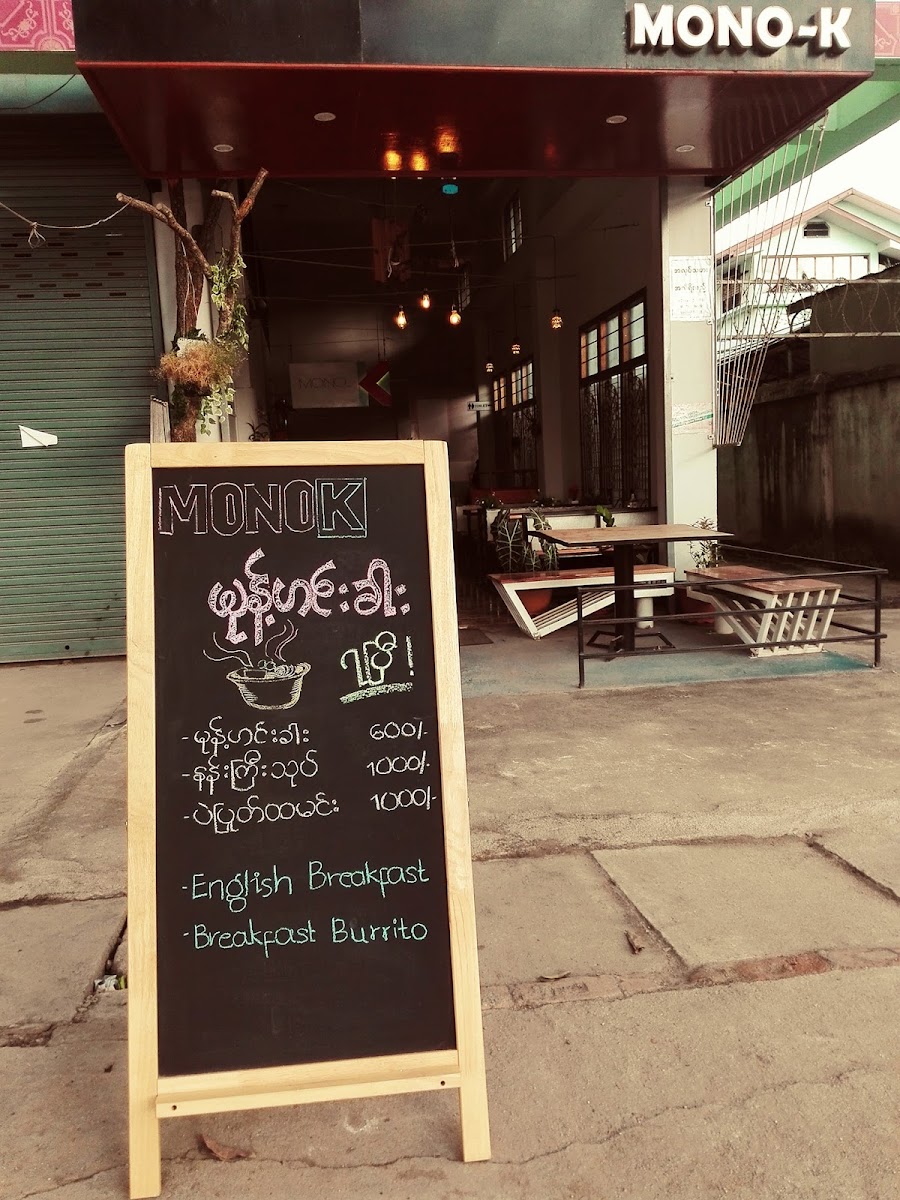 MONO-K
MONO
MONOK
မုန့်ဟင်းခါး
ရပြီ!
- မုန့်ဟင်းခါး 600/-
- နန်းကြီးသုပ် 1000/-
- ပဲပြုတ်ထမင်း 1000/-
- English Breakfast
- Breakfast Burrito